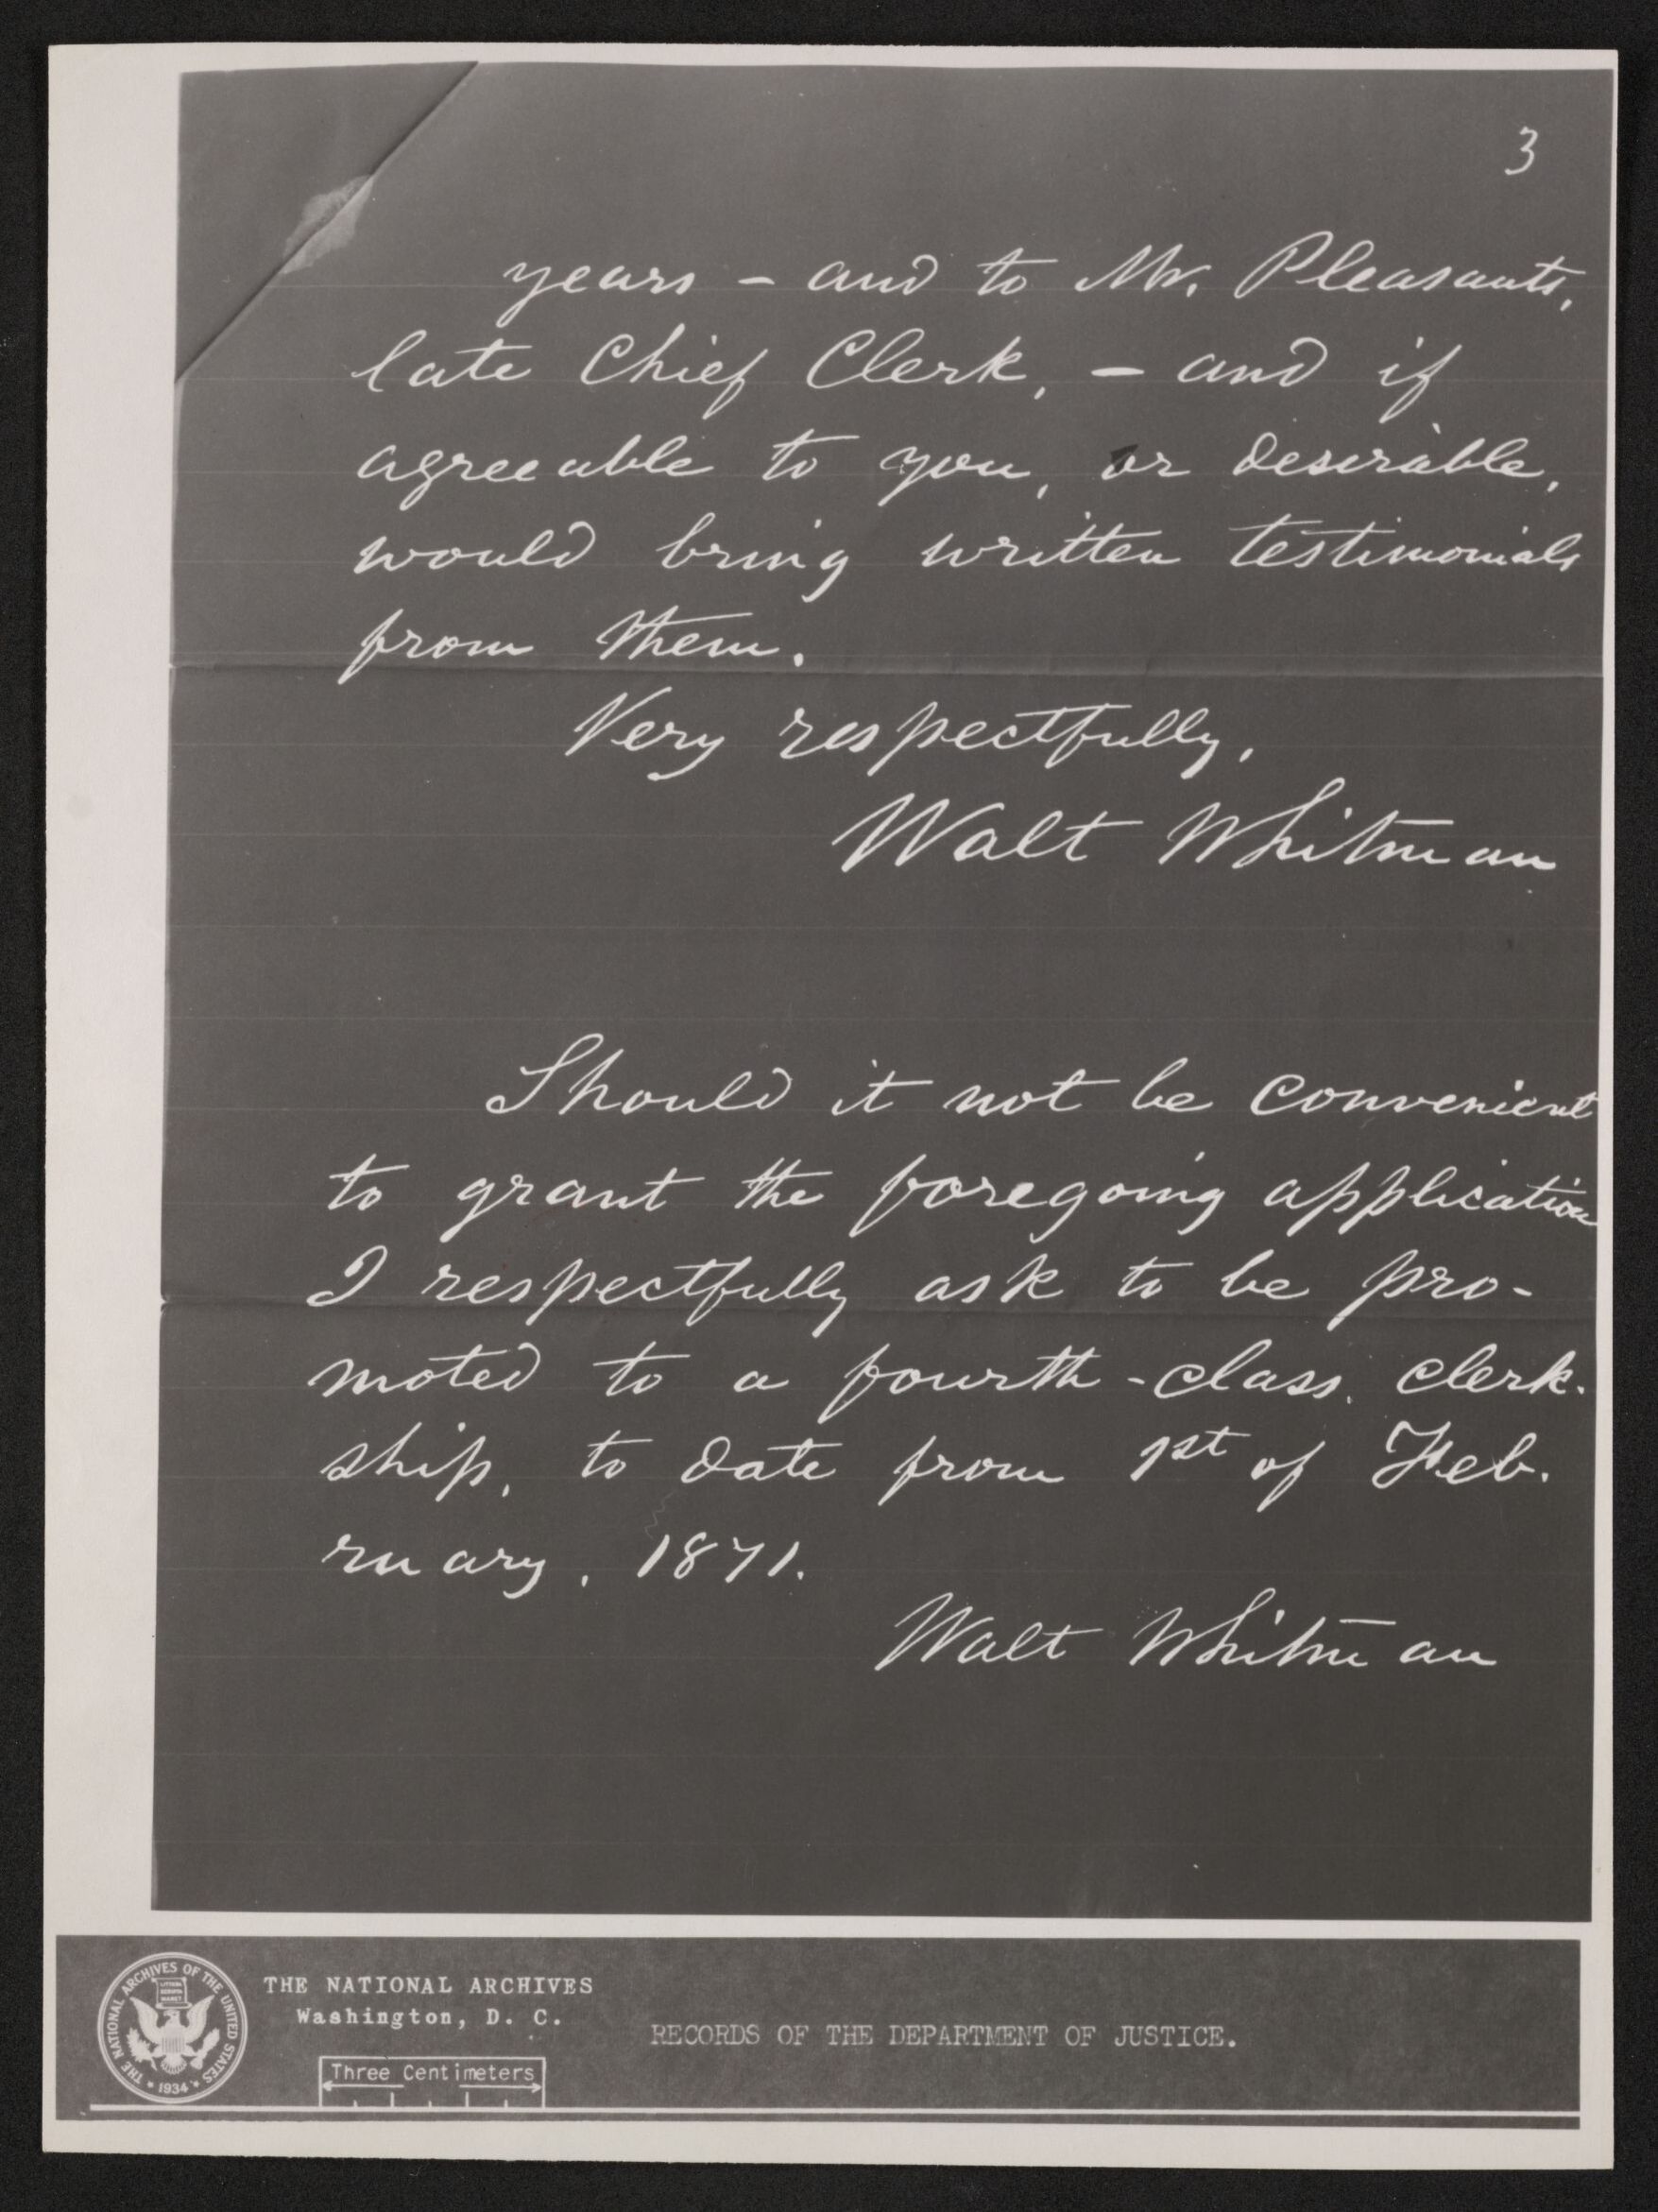 3
years – and to Mr. Pleasants,
late Chief Clerk, – and if
agreeable to you, or desirable,
would bring written testimonials
from them.
Very respectfully,
Walt Whitman
Should it not be convenient
to grant the foregoing application
I respectfully ask to be pro-
moted to a fourth-class clerk-
ship, to date from 1st of Feb-
ruary, 1871.
Walt Whitman
THE NATIONAL ARCHIVES OF THE UNITED STATES
LITTERA
SCRIPTA
MANET
* 1934 *
THE NATIONAL ARCHIVES
Washington, D. C.
RECORDS OF THE DEPARTMENT OF JUSTICE.
Three Centimeters